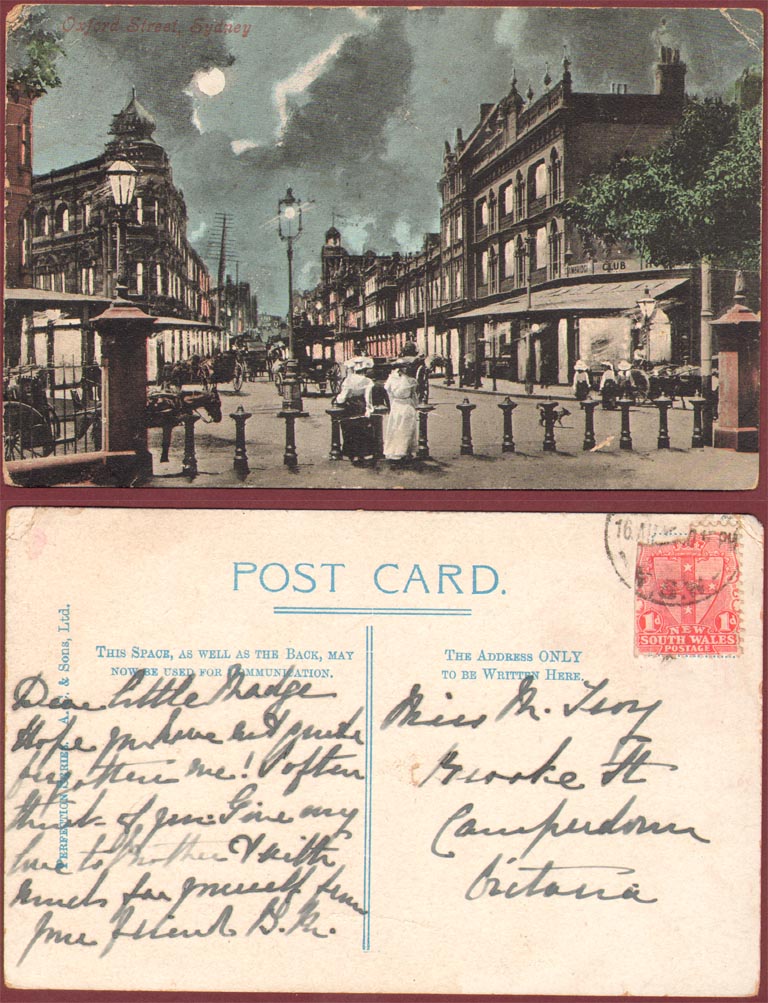 Oxford Street, Sydney
CLUB
POST CARD.
THIS SPACE, AS WELL AS THE BACK, MAY
NOW BE USED FOR COMMUNICATION.
THE ADDRESS ONLY
TO BE WRITTEN HERE.
PERFECTION SERIES. & Sons, Ltd.
16
N.S.W
1d 1d
NEW
SOUTH WALES
POSTAGE
Dear little Madge
Hope you have not quite
forgotten me! I often
think of you. Give my
love to Mother & with
much for yourself from
your friend B. M.
Miss M.
Brooke St
Camperdown
Victoria